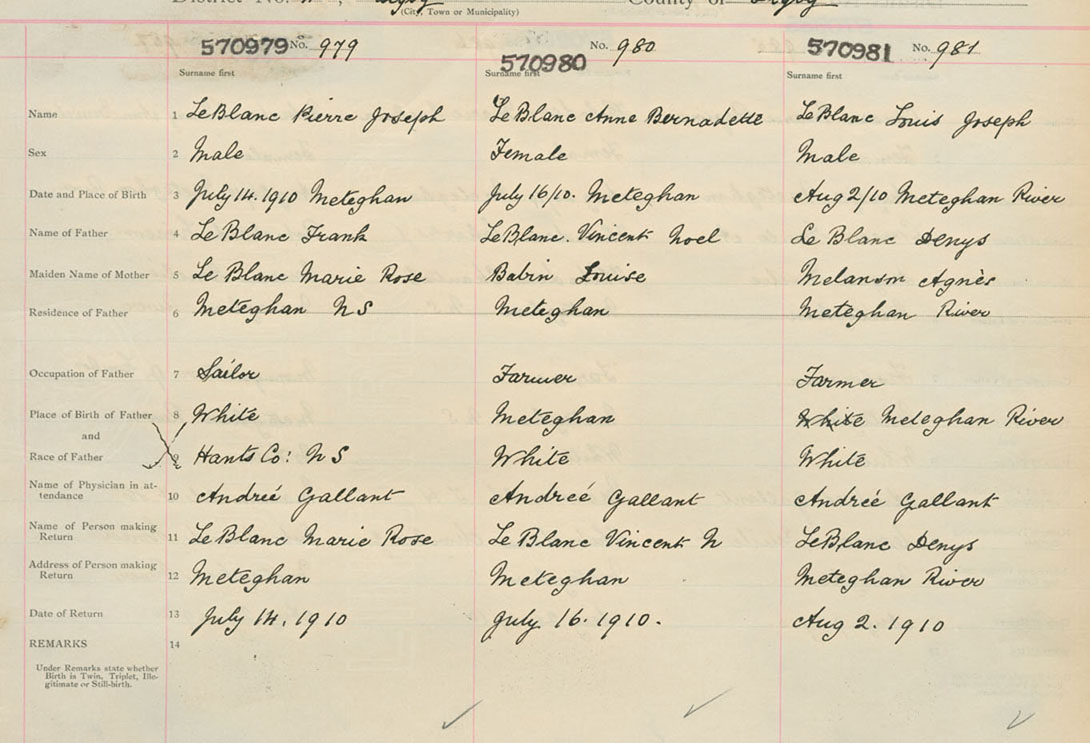 District No. Digby County of Digby
(City, Town or Municipality)
570979 No. 979 570980 No. 980 570981 No. 981
Surname first Surname first Surname first
Name 1 LeBlanc Pierre Joseph LeBlanc Anne Bernadette LeBlanc Louis Joseph
Sex 2 Male Female Male
Date and Place of Birth 3 July 14. 1910 Meteghan July 16/10. Meteghan Aug 2/10 Meteghan River
Name of Father 4 LeBlanc Frank LeBlanc. Vincent Noel Le Blanc Denys
Maiden Name of Mother 5 Le Blanc Marie Rose Babin Louise Melanson Agnès
Residence of Father 6 Meteghan N S Meteghan Meteghan River
Occupation of Father 7 Sailor Farmer Farmer
Place of Birth of Father 8 White Meteghan White Meteghan River
and
Race of Father 9 Hants Co: N S White White
Name of Physician in at-
tendance 10 Andreé Gallant Andreé Gallant Andreé Gallant
Name of Person making
Return 11 LeBlanc Marie Rose Le Blanc Vincent N LeBlanc Denys
Address of Person making
Return 12 Meteghan Meteghan Meteghan River
Date of Return 13 July 14. 1910 July. 16. 1910. Aug 2. 1910
REMARKS 14
Under Remarks state whether
Birth is Twin, Triplet, Ille-
gitimate or Still-birth.